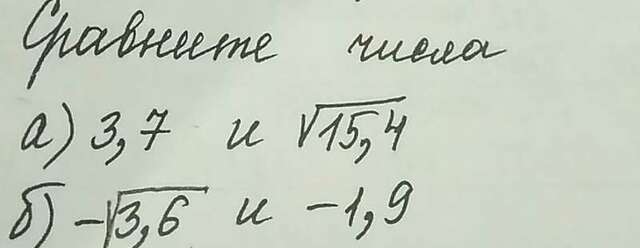 Сравните числа
а) 3,7 и √15,4
б) -√3,6 и -1,9